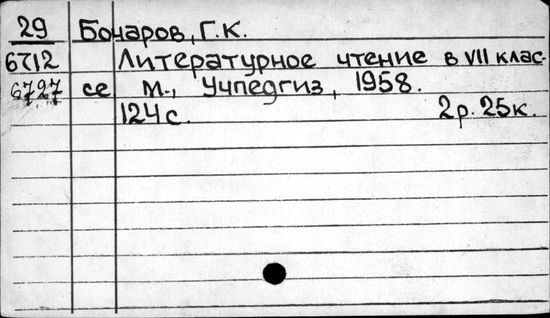 29 Бочаров, Г.К.
6712 Литературное чтение в VII клас-
6727 се М., Учпедгиз, 1958.
124 с. 2р. 25к.